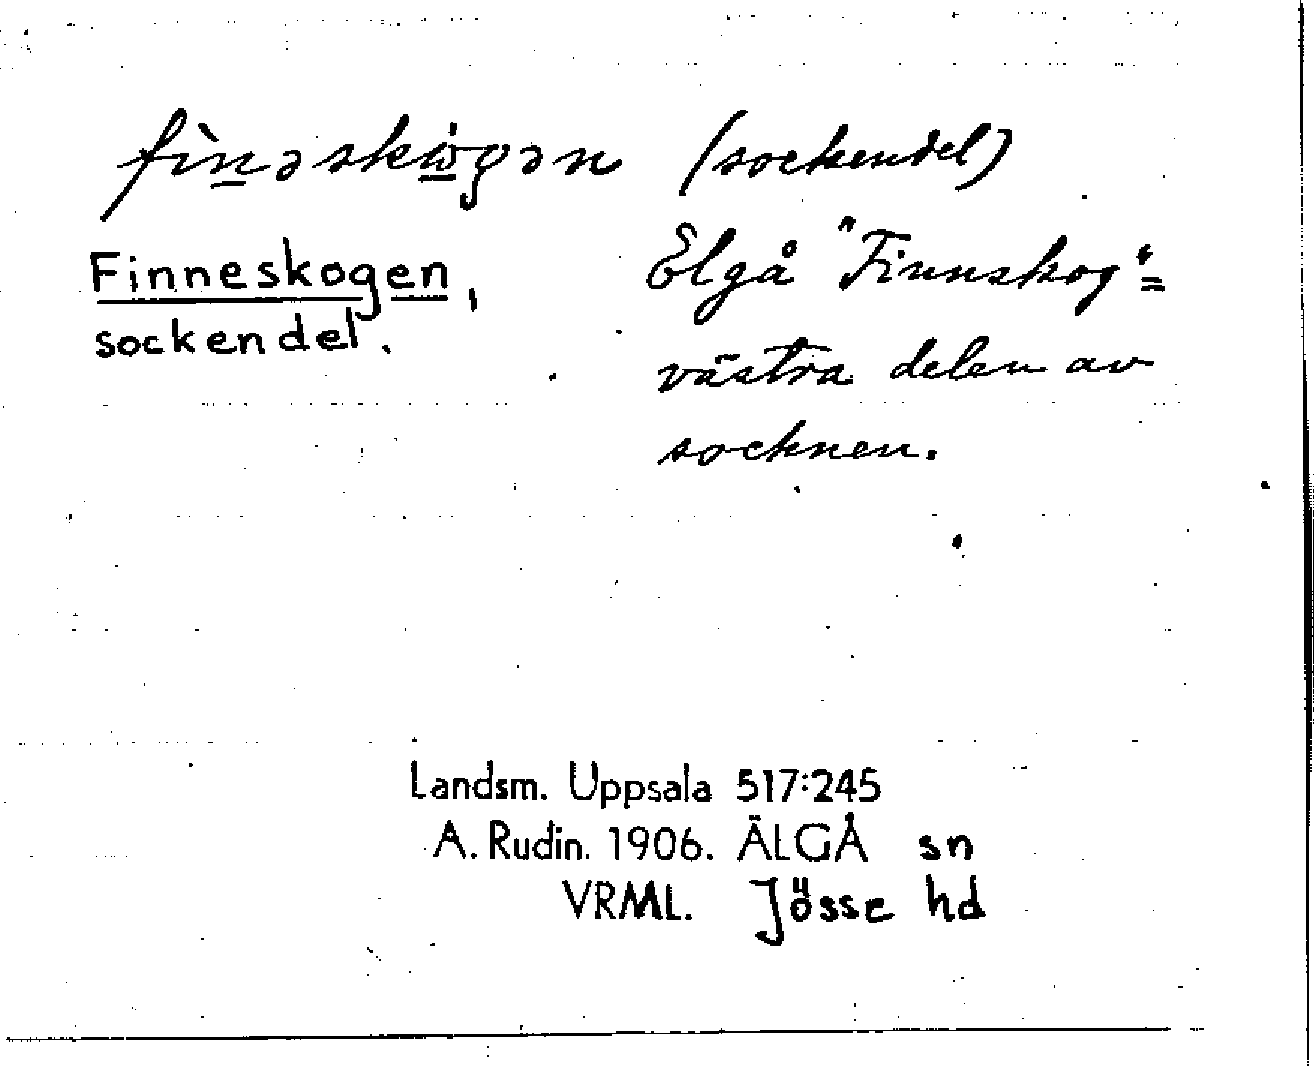 fìnəskẁgən (sockendel)
Finneskogen,
sockendel.
Elgå "Finnskog" =
västra delen av
socknen.
Landsm. Uppsala 517:245
A. Rudin. 1906. ÄLGÅ sn
VRML. Jösse hd